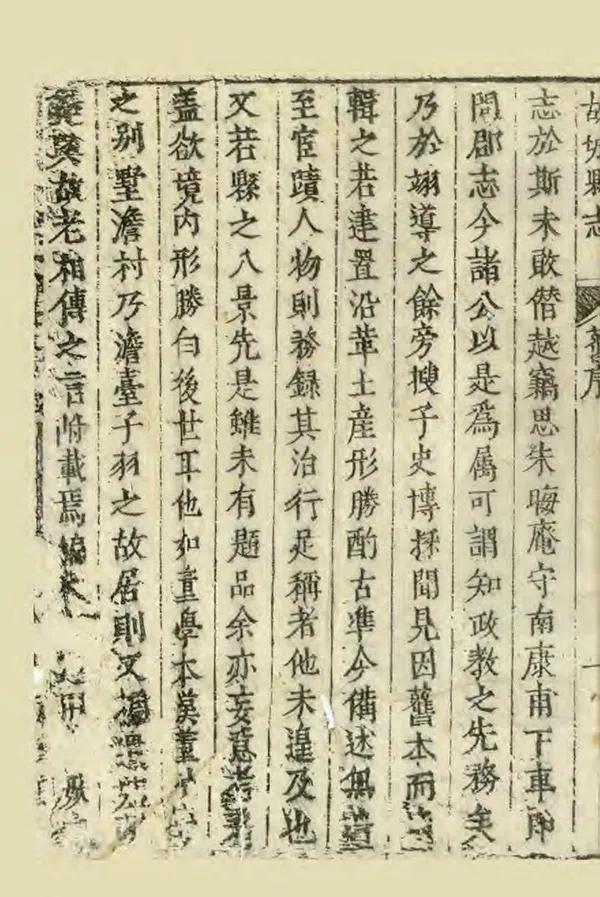 故城縣志 舊序 一
志於斯未敢僭越竊思朱晦庵守南康甫下車即
問郡志今諸公以是爲属可謂知政教之先務矣
乃於翊導之餘旁搜子史博採聞見因舊本而
輯之若建置沿革土産形勝酌古準今備述無遺
至宦蹟人物則務録其治行足稱者他未遑及也
文若縣之八景先是雖未有題品余亦妄意
盖欲境内形勝白後世耳他如董學本漢董
之别墅澹村乃澹臺子羽之故居則又
故老相傳之言附載焉編